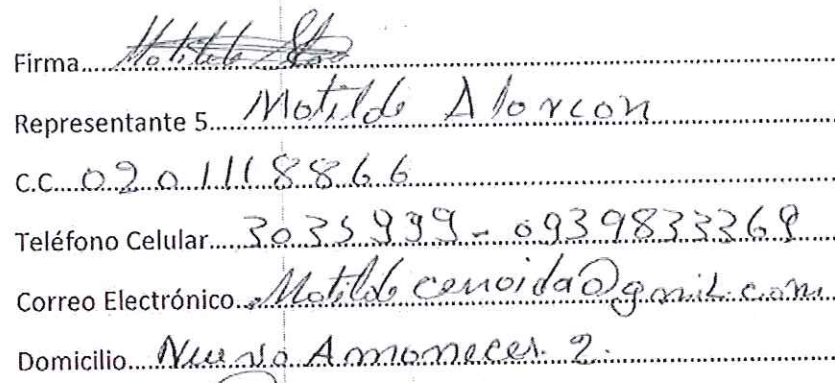 Firma.....
Representante 5..... Matilde Alarcon
C.C. 0201118866
Teléfono Celular..... 3035999 - 0939833369
Correo Electrónico.. @gmil.com
Domicilio.... Nuevo Amanecer 2.